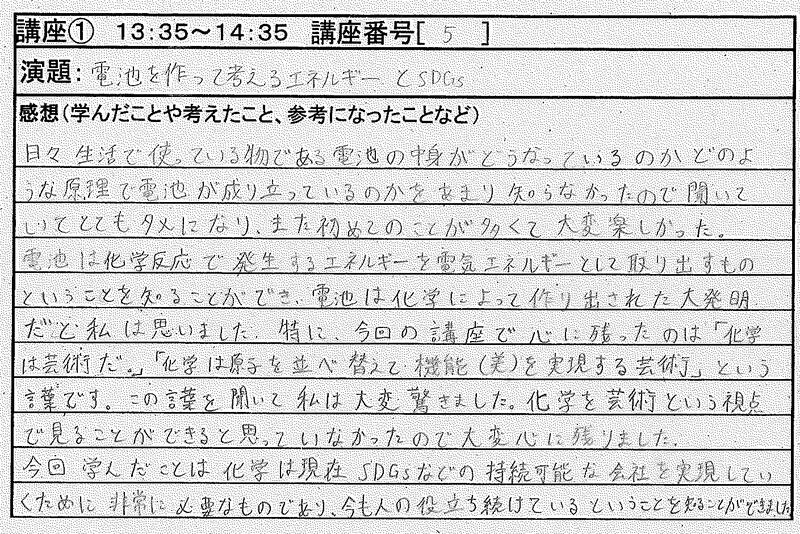 講座① 13:35～14:35 講座番号[ 5 ]
演題: 電池を作って考えるエネルギーとSDGs
感想(学んだことや考えたこと、参考になったことなど)
日々生活で使っている物である電池の中身がどうなっているのかどのよ
うな原理で電池が成り立っているのかをあまり知らなかったので聞いて
いてとてもタメになり、また初めてのことが多くて大変楽しかった。
電池は化学反応で発生するエネルギーを電気エネルギーとして取り出すもの
ということを知ることができ、電池は化学によって作り出された大発明
だと私は思いました。特に、今回の講座で心に残ったのは「化学
は芸術だ。」「化学は原子を並べ替えて機能(美)を実現する芸術」という
言葉です。この言葉を聞いて私は大変驚きました。化学を芸術という視点
で見ることができると思っていなかったので大変心に残りました。
今回学んだことは化学は現在SDGsなどの持続可能な会社を実現してい
くために非常に必要なものであり、今も人の役立ち続けているということを知ることができました